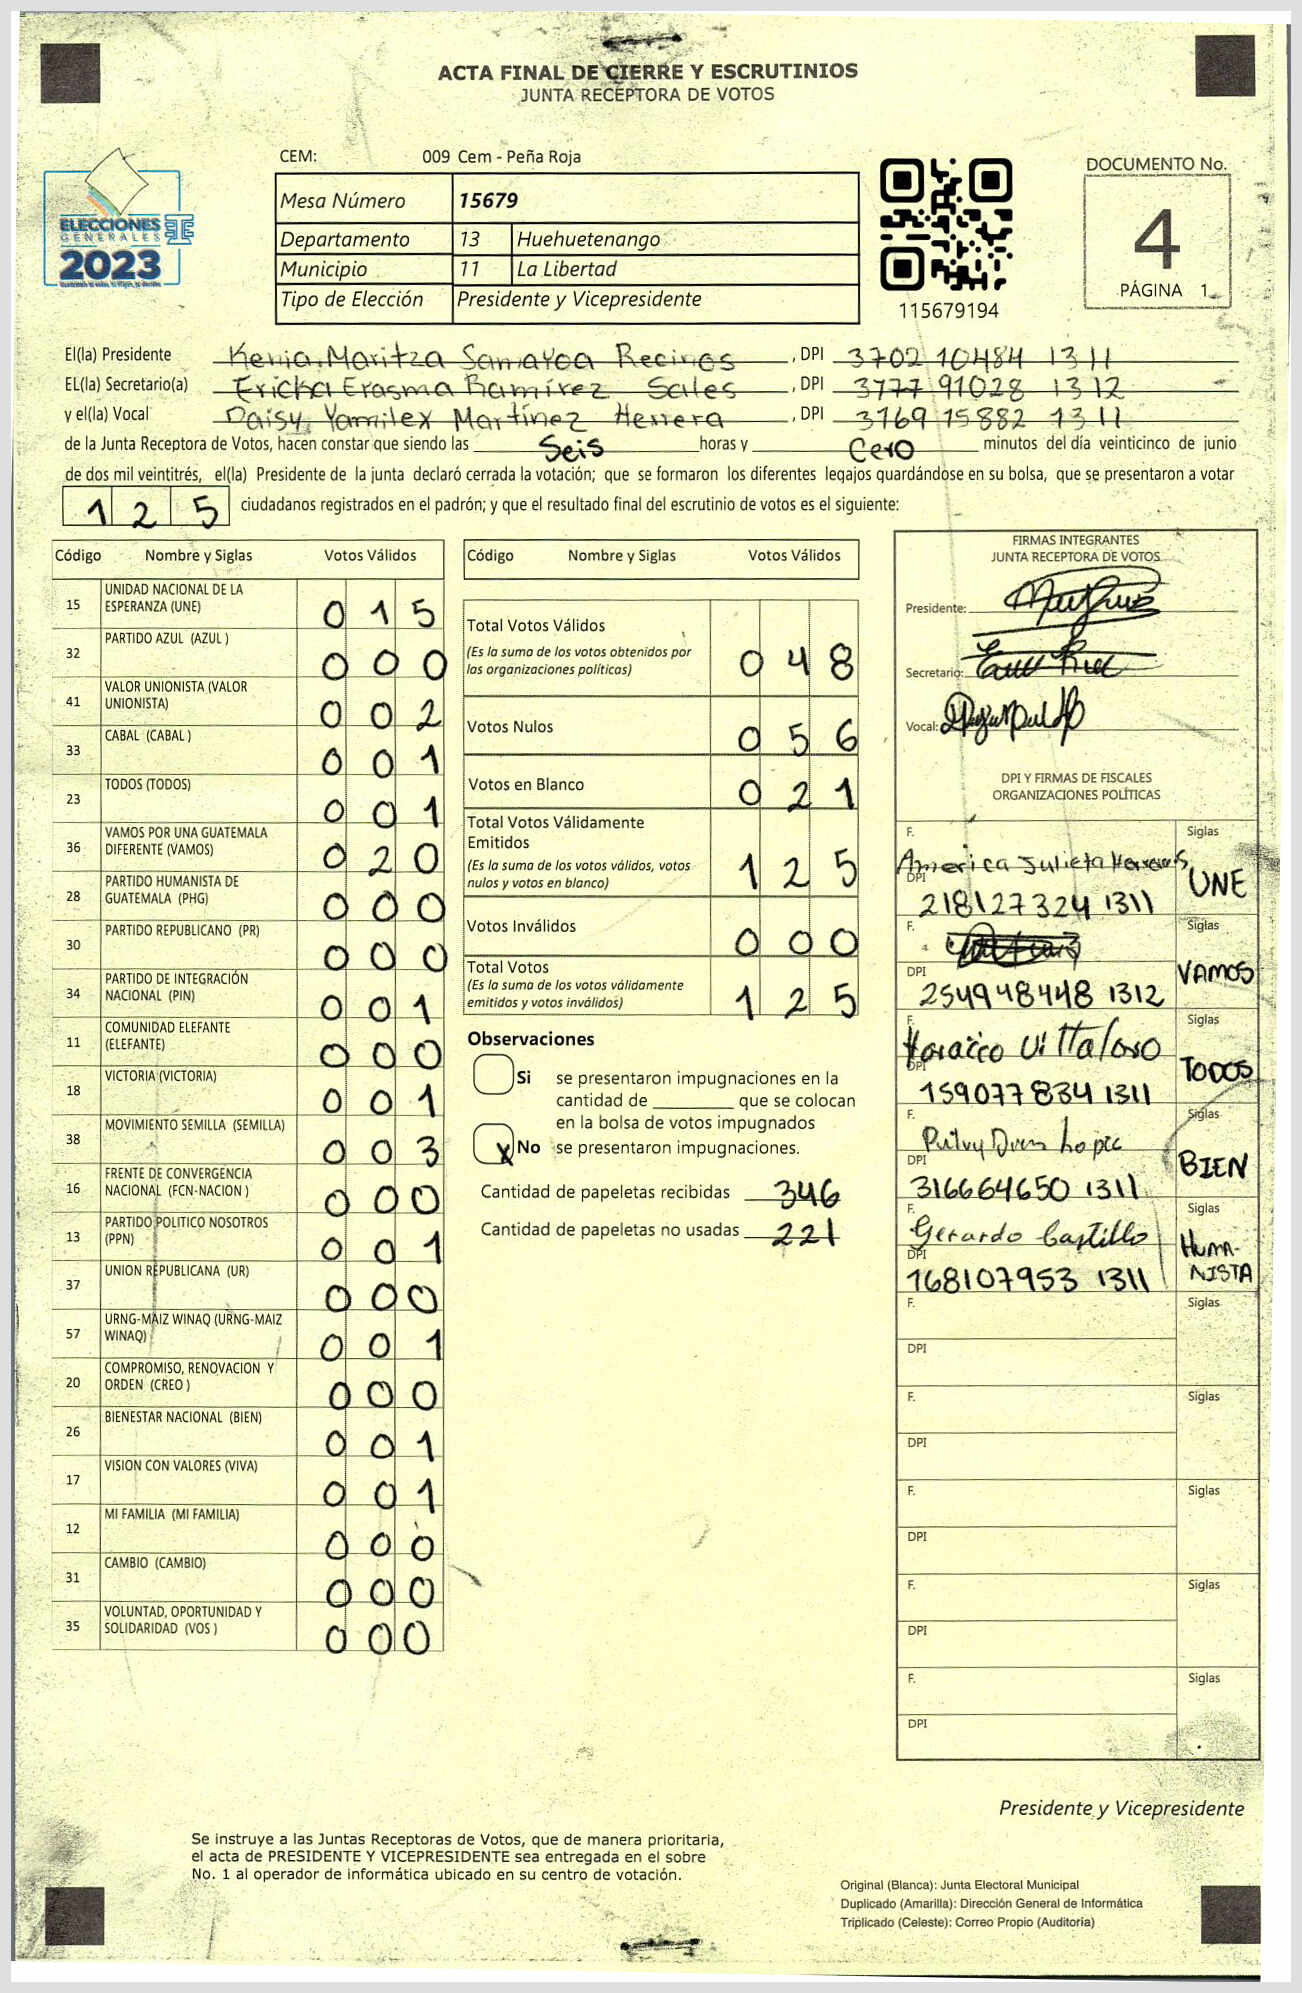 ACTA FINAL DE CIERRE Y ESCRUTINIOS
JUNTA RECEPTORA DE VOTOS
ELECCIONES
GENERALES
2023
CEM: 009 Cem - Peña Roja
Mesa Número 15679
Departamento 13 Huehuetenango
Municipio 11 La Libertad
Tipo de Elección Presidente y Vicepresidente
115679194
DOCUMENTO No.
4
PÁGINA 1
El(la) Presidente Kenia Maritza Samayoa Recinos , DPI 3702 10484 1311
EL(la) Secretario(a) Ericka Erasma Ramírez Sales , DPI 3777 91028 1312
y el(la) Vocal Daisy Yamilex Martínez Herrera , DPI 3169 15882 1311
de la Junta Receptora de Votos, hacen constar que siendo las Seis horas y Cero minutos del día veinticinco de junio
de dos mil veintitrés, el(la) Presidente de la junta declaró cerrada la votación; que se formaron los diferentes legajos guardándose en su bolsa, que se presentaron a votar
125 ciudadanos registrados en el padrón; y que el resultado final del escrutinio de votos es el siguiente:
Código Nombre y Siglas Votos Válidos
15 UNIDAD NACIONAL DE LA ESPERANZA (UNE) 015
32 PARTIDO AZUL (AZUL ) 000
41 VALOR UNIONISTA (VALOR UNIONISTA) 002
33 CABAL (CABAL ) 001
23 TODOS (TODOS) 001
36 VAMOS POR UNA GUATEMALA DIFERENTE (VAMOS) 020
28 PARTIDO HUMANISTA DE GUATEMALA (PHG) 000
30 PARTIDO REPUBLICANO (PR) 000
34 PARTIDO DE INTEGRACIÓN NACIONAL (PIN) 001
11 COMUNIDAD ELEFANTE (ELEFANTE) 000
18 VICTORIA (VICTORIA) 001
38 MOVIMIENTO SEMILLA (SEMILLA) 003
16 FRENTE DE CONVERGENCIA NACIONAL (FCN-NACION ) 000
13 PARTIDO POLITICO NOSOTROS (PPN) 001
37 UNION REPUBLICANA (UR) 000
57 URNG-MAIZ WINAQ (URNG-MAIZ WINAQ) 001
20 COMPROMISO, RENOVACION Y ORDEN (CREO ) 000
26 BIENESTAR NACIONAL (BIEN) 001
17 VISION CON VALORES (VIVA) 001
12 MI FAMILIA (MI FAMILIA) 000
31 CAMBIO (CAMBIO) 000
35 VOLUNTAD, OPORTUNIDAD Y SOLIDARIDAD (VOS ) 000
Código Nombre y Siglas Votos Válidos
Total Votos Válidos 048
(Es la suma de los votos obtenidos por
las organizaciones políticas)
Votos Nulos 056
Votos en Blanco 021
Total Votos Válidamente
Emitidos 125
(Es la suma de los votos válidos, votos
nulos y votos en blanco)
Votos Inválidos 000
Total Votos 125
(Es la suma de los votos válidamente
emitidos y votos inválidos)
Observaciones
Si se presentaron impugnaciones en la
cantidad de ________ que se colocan
en la bolsa de votos impugnados
X No se presentaron impugnaciones.
Cantidad de papeletas recibidas 346
Cantidad de papeletas no usadas 221
FIRMAS INTEGRANTES
JUNTA RECEPTORA DE VOTOS
Presidente:
Secretario:
Vocal:
DPI Y FIRMAS DE FISCALES
ORGANIZACIONES POLÍTICAS
F. America Julieta Siglas
DPI 218127324 1311 UNE
F. Siglas
DPI 254948448 1312 VAMOS
F. Siglas
DPI 159077834 1311 TODOS
F. Lopez Siglas
DPI 316664650 1311 BIEN
F. Gerardo Castillo Siglas
DPI 168107953 1311 HUMA-
NISTA
F. Siglas
DPI
F. Siglas
DPI
F. Siglas
DPI
F. Siglas
DPI
F. Siglas
DPI
Presidente y Vicepresidente
Se instruye a las Juntas Receptoras de Votos, que de manera prioritaria,
el acta de PRESIDENTE Y VICEPRESIDENTE sea entregada en el sobre
No. 1 al operador de informática ubicado en su centro de votación.
Original (Blanca): Junta Electoral Municipal
Duplicado (Amarilla): Dirección General de Informática
Triplicado (Celeste): Correo Propio (Auditoría)